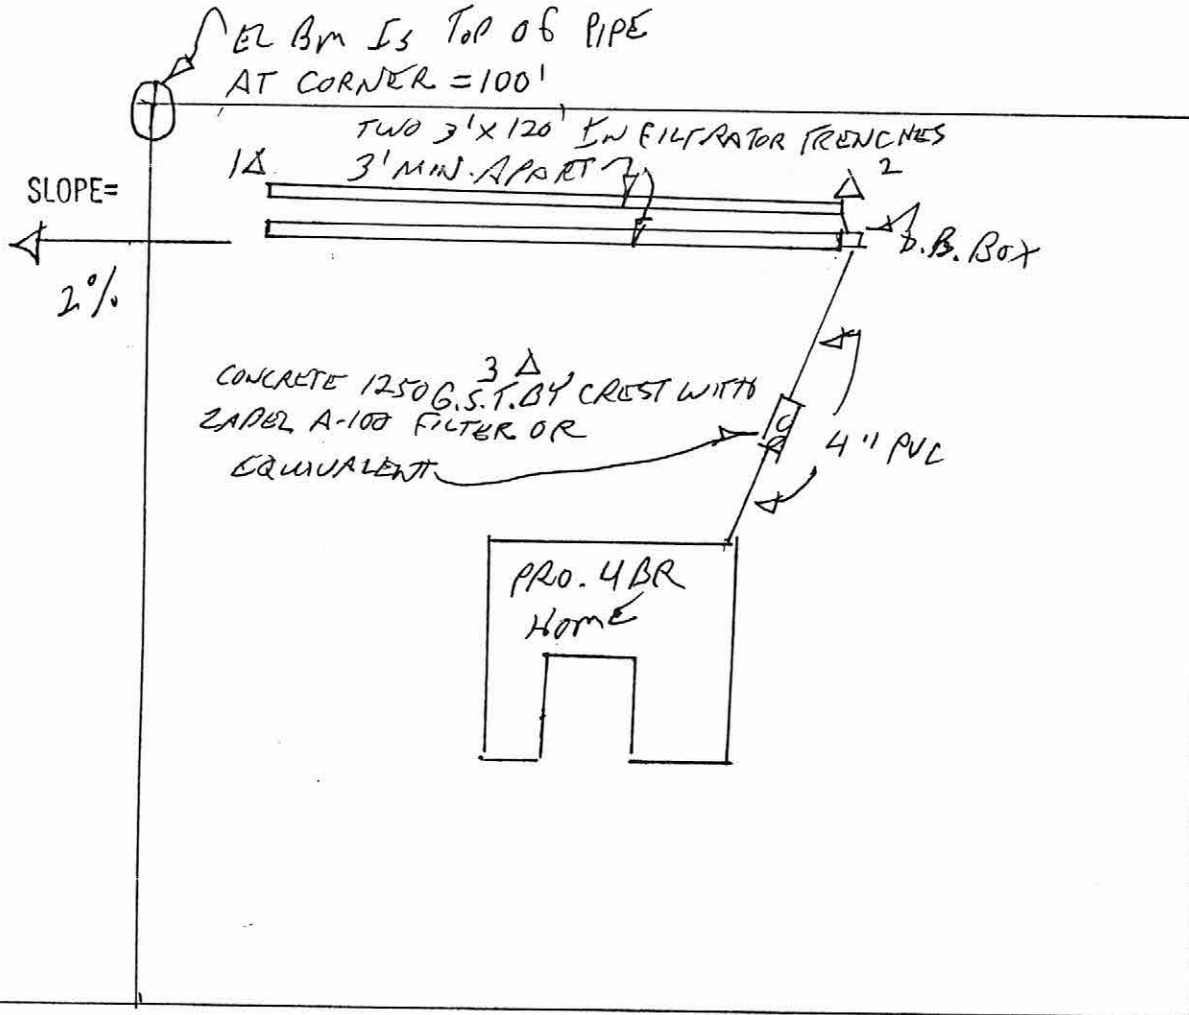 EL BM Is TOP OF PIPE
AT CORNER = 100'
TWO 3' X 120' INFILTRATOR TRENCHES
3' MIN. APART
1Δ
Δ 2
SLOPE=
2%
D.B. BOX
3 Δ
CONCRETE 1250 G.S.T. BY CREST WITH
ZABEL A-100 FILTER OR
EQUIVALENT
4" PVC
PRO. 4 BR
HOME